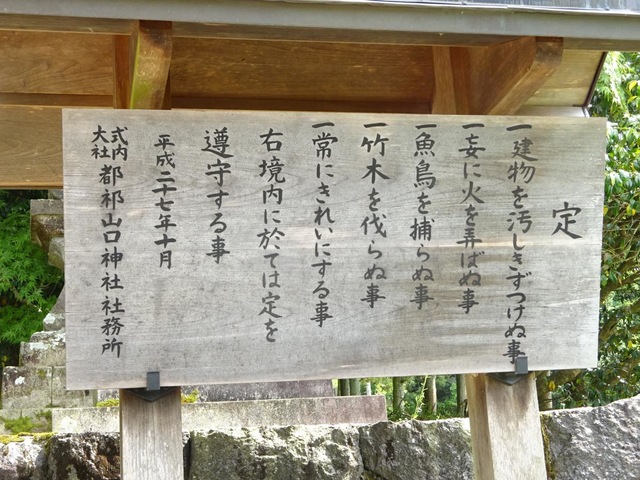 定
一建物を汚しきずつけぬ事
一妄に火を弄ばぬ事
一魚鳥を捕らぬ事
一竹木を伐らぬ事
一常にきれいにする事
右境内に於ては定を
遵守する事
平成二十七年十月
式内大社 都祁山口神社社務所